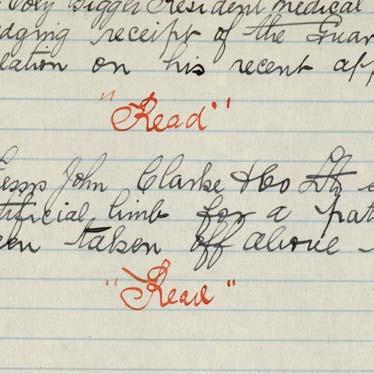 Coly Bigger Resident Medical
edging receipt of the Guar
lation on his recent app
"Read"
essrs John Clarke & Co Ltd
tificial limb for a pat
een taken off above
"Read"